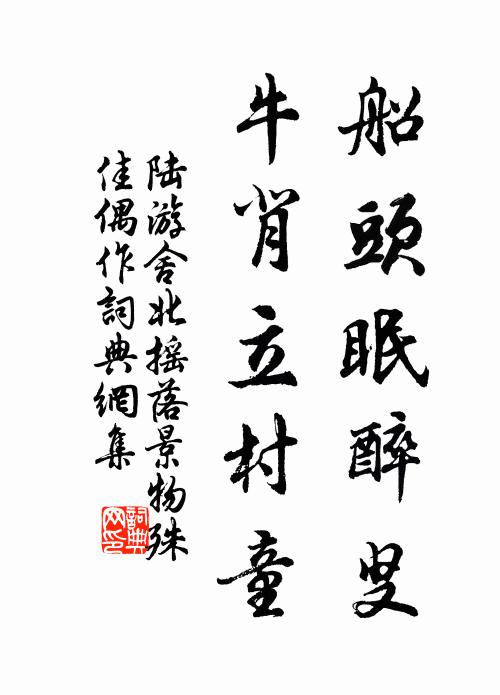 船頭眠醉叟
牛背立村童
陆游舍北摇落景物殊
佳偶作詞典網集
詞典網印